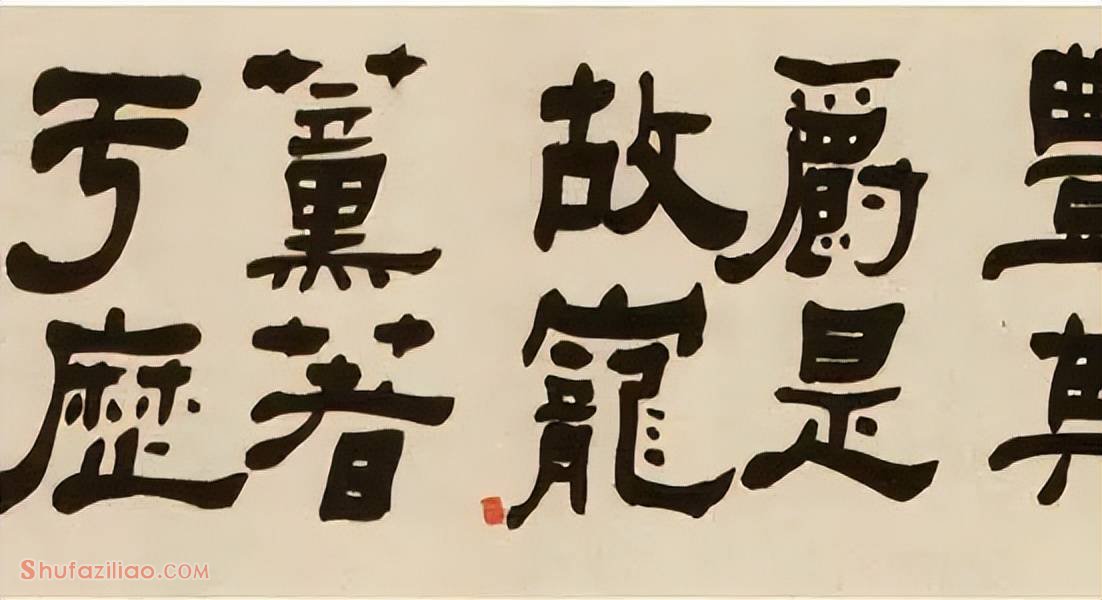 豐
爵是
故寵
薰著
于歷
Shufaziliao.COM